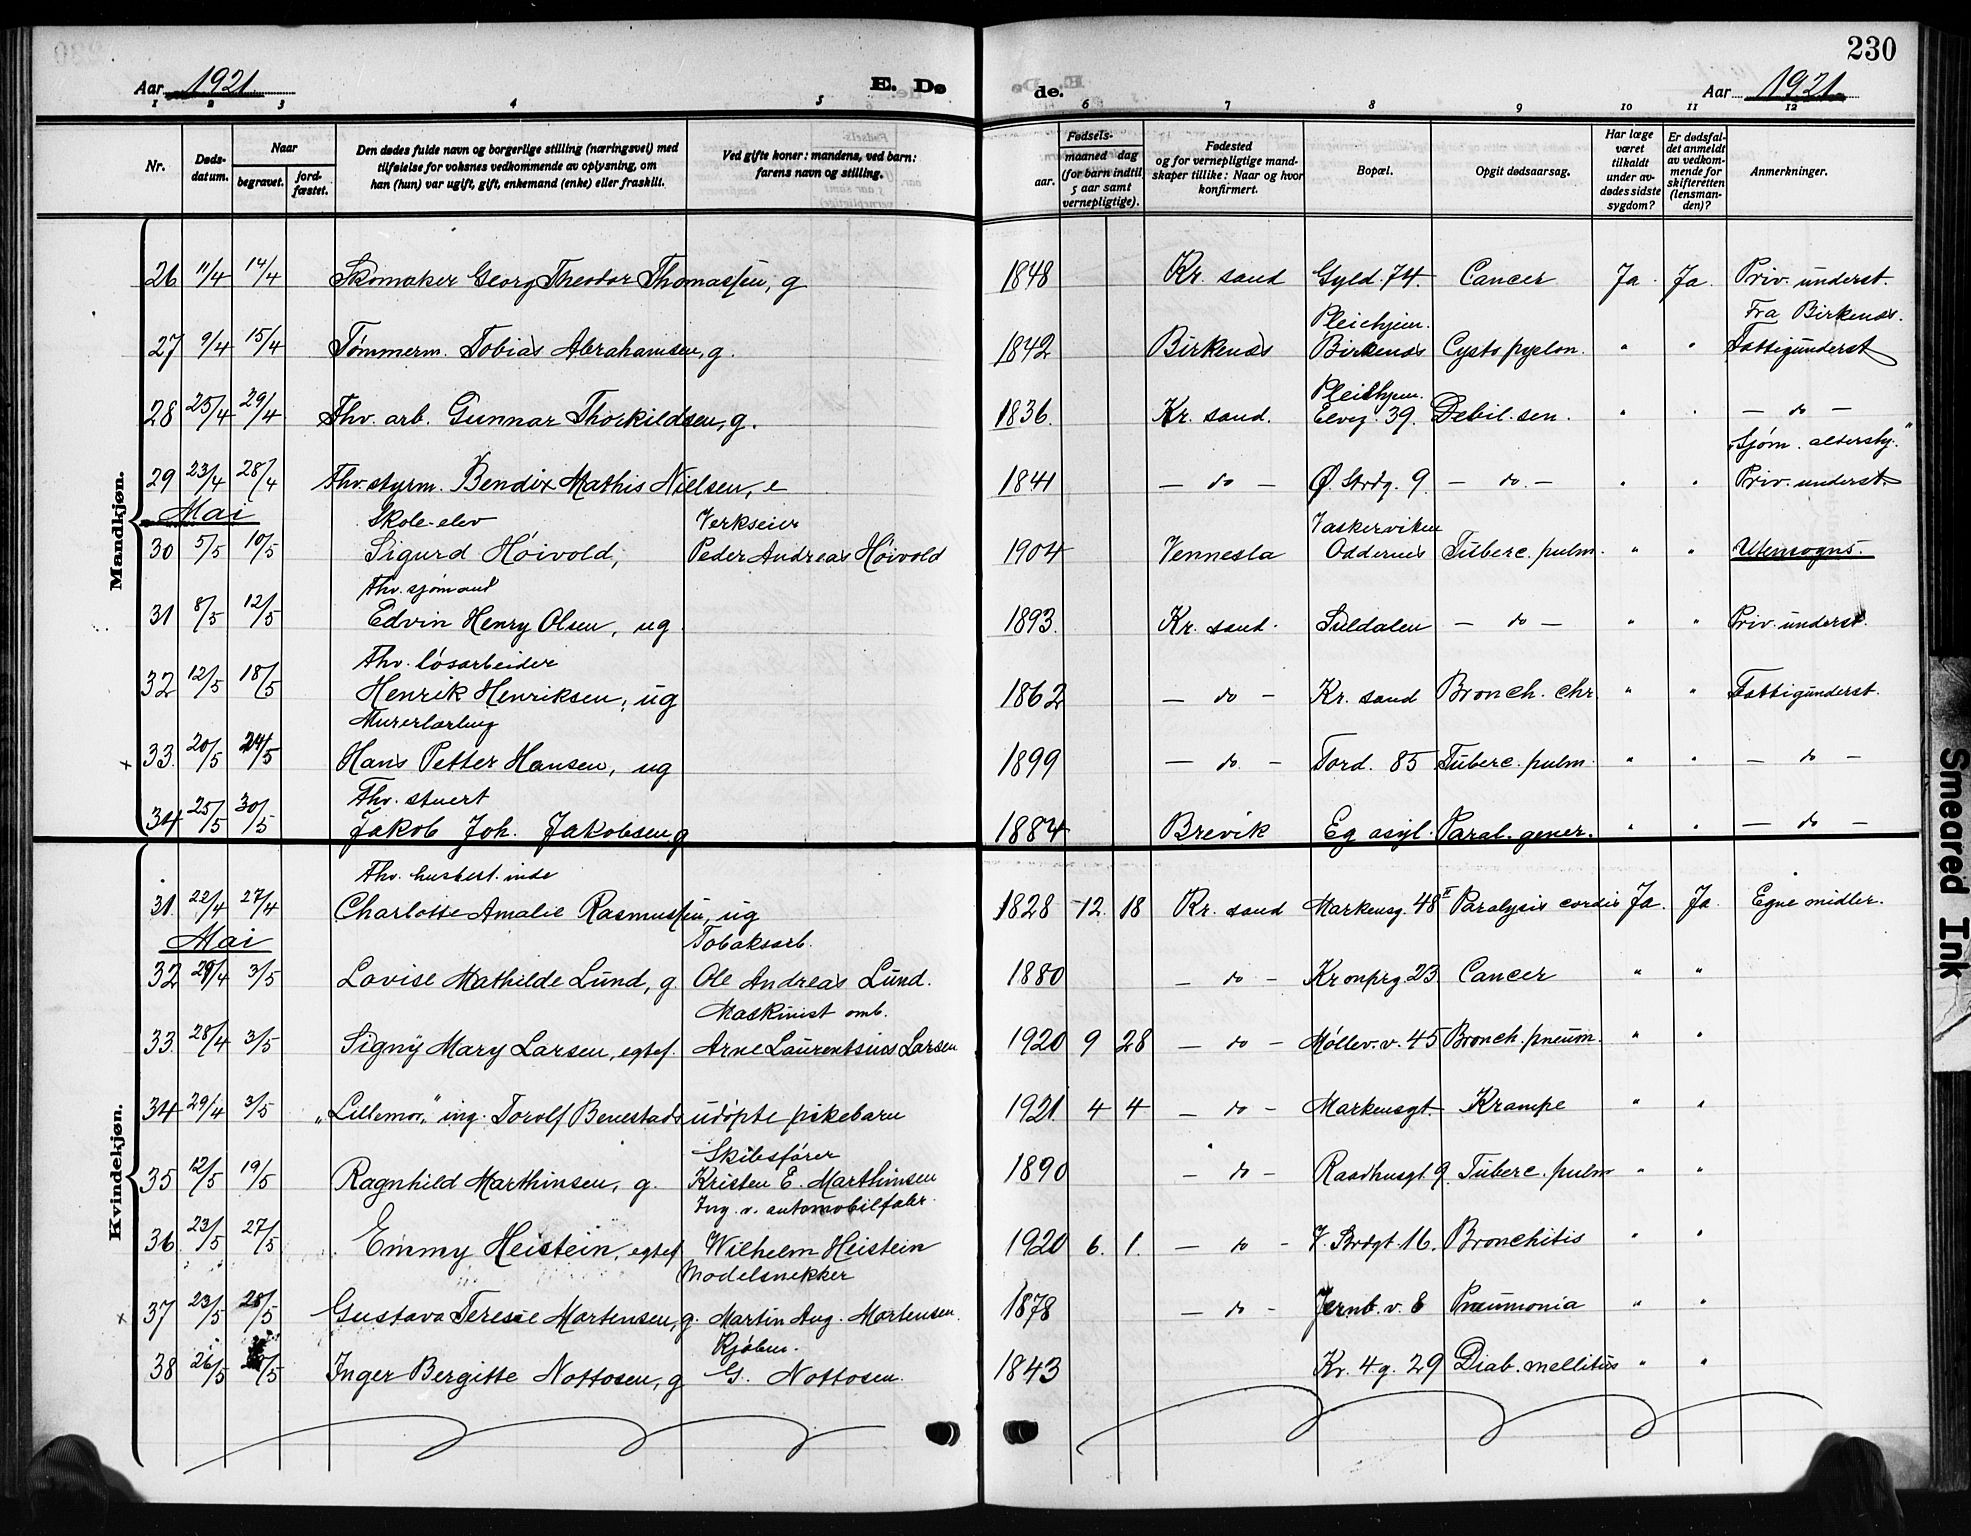 230
Aar 1921 E. Dø
de. Aar 1921
1 2 3 4 5 6 7 8 9 10 11 12
Nr.
Døds-
datum.
Naar
begravet.
jord-
fæstet.
Den dødes fulde navn og borgerlige stilling (næringsvei) med
tilføielse for voksnes vedkommende av oplysning, om
han (hun) var ugift, gift, enkemand (enke) eller fraskilt.
Ved gifte koner: mandens, ved barn:
farens navn og stilling.
Fødsels-
aar.
maaned dag
(for barn indtil
5 aar samt
vernepligtige).
Fødested
og for vernepligtige mand-
skaper tillike: Naar og hvor
konfirmert.
Bopæl.
Opgit dødsaarsag.
Har læge
været
tilkaldt
under av-
dødes sidste
sygdom?
Er dødsfal-
det anmeldt
av vedkom-
mende for
skifteretten
(lensman-
den)?
Anmerkninger.
Mandkjøn.
26 11/4 14/4 Skomaker Georg Theodor Thomassen, g 1848 Kr. sand Gyld. 74. Cancer Ja. Ja. Priv. underst.
Pleiehjem. Fra Birkenæs.
27 9/4 15/4 Tømmerm. Tobias Abrahamsen, g. 1842 Birkenæs Birkenæs Cysto pyelon. " " Fattigunderst
Pleiehjem.
28 25/4 29/4 Fhv. arb. Gunnar Thorkildsen, g. 1836. Kr. sand. Elveg. 39. Debil. sen. " " — do —
"Sjøm. aldershj."
29 23/4 28/4 Fhv. styrm. Bendix Mathis Nielsen, e 1841 — do — Ø. Strdg. 9. — do. — " " Priv. underst.
Mai Skole-elev Verkseier Vaskerviken
30 5/5 10/5 Sigurd Høivold, Peder Andreas Høivold 1904 Vennesla Oddernes Tuberc. pulm. " " Utensogns.
Fhv. sjømand
31 8/5 12/5 Edvin Henry Olsen, ug. 1893. Kr. sand. Suldalen — do — " " Priv. underst.
Fhv. løsarbeider
32 12/5 18/5 Henrik Henriksen, ug 1862 — do — Kr. sand Bronch. chr. " " Fattigunderst.
Murerlærling
+ 33. 20/5 24/5 Hans Petter Hansen, ug 1899 — do. — Tord. 85 Tuberc. pulm. " " — do —
Fhv. stuert
34 25/5 30/5 Jakob Joh. Jakobsen, g 1884 Brevik Eg asyl. Paral. gener. " " — do —
Kvindekjøn.
Fhv. husbest. inde
31. 22/4 27/4 Charlotte Amalie Rasmussen, ug 1828 12. 18 Kr. sand Markensg. 48 II Paralysis cordis Ja. Ja. Egne midler.
Mai Tobaksarb.
32 29/4 3/5 Lovise Mathilde Lund, g Ole Andreas Lund. 1880 — do — Kronprg 23 Cancer " "
Maskinist omb.
33. 28/4 3/5 Signy Mary Larsen, egtef. Arne Laurentsius Larsen 1920 9 28 — do — Møllev. v. 45 Bronch. pneum. " "
34 29/4 3/5 „Lillemor," ing. Torolf Benestads udøpte pikebarn 1921. 4 4 — do — Markensgt. Krampe " "
Skibsfører
35 12/5 19/5 Ragnhild Marthinsen, g. Kristen E. Marthinsen 1890 — do — Raadhusgt 9. Tuberc. pulm " "
Ing. v. automobilfabr.
36. 23/5 27/5 Emmy Heistein, egtef Wilhelm Heistein 1920 6. 1. — do — V. Strdgt. 16. Bronchitis " "
Modelsnekker
+ 37 23/5 28/5 Gustava Teresie Mortensen, g. Martin Aug. Mortensen. 1878 — do — Jernb. v. 8 Pneumonia " "
Kjøbm.
38 26/5 Inger Bergitte Nottosen, g G. Nottosen. 1843 Kr. 4. g. 29 Diab. mellitus " "
Smeared Ink